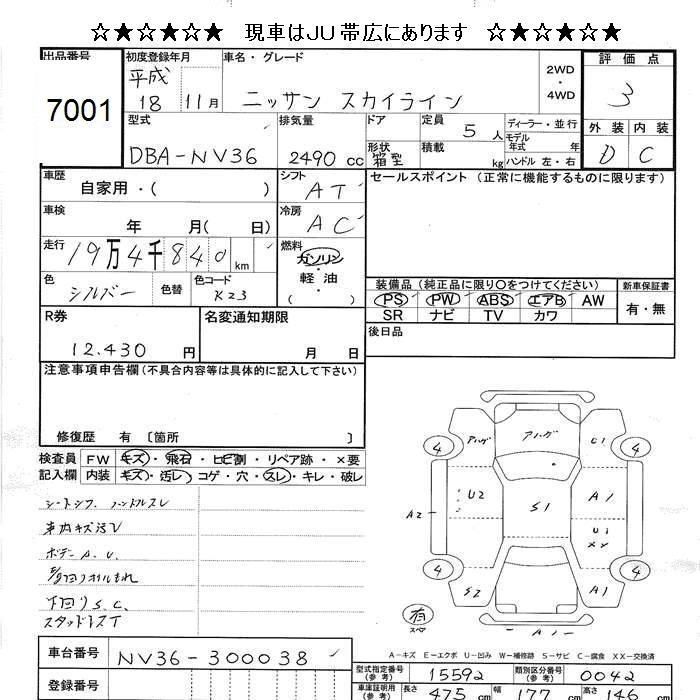 ☆★☆★☆★ 現車はJU帯広にあります ☆★☆★☆★
出品番号 初度登録年月 車名・グレード 評価点
7001 平成 18 11月 ニッサン スカイライン 2WD・4WD 3
型式 排気量 ドア 定員 5人 ディーラー・並行 外装 内装
DBA-NV36 2490cc 形状 箱型 積載 kg モデル年式 年 ハンドル 左・右 D C
車歴 自家用・( ) シフト AT セールスポイント (正常に機能するものに限ります)
車検 年 月( 日) 冷房 AC
走行 19万4千840km 燃料 ガソリン・軽油 ( )
色 シルバー 色替 色コード K23 装備品 (純正品に限り○をつけてください) 新車保証書
PS PW ABS エアB AW 有・無
SR ナビ TV カワ
R券 名変通知期限 後日品
12.430円 月 日
注意事項申告欄 (不具合内容等は具体的に記入して下さい)
修復歴 有 〔箇所 〕
検査員 FW キズ・飛石・ヒビ割・リペア跡・×要
記入欄 内装 キズ・汚レ・コゲ・穴・スレ・キレ・破レ
車内キズ汚レ
ボデー A.U.
下回りS.C.
スタッドレスT
4 アハゲ アハゲ U1 4
U2 S1 A1
A2 U1 XX
4 S2 A1 4
有 スペア A1
A-キズ E-エクボ U-凹み W-補修跡 S-サビ C-腐食 XX-交換済
車台番号 NV36-300038
型式指定番号(参考) 15592 類別区分番号(参考) 0042
登録番号 車庫証明用(参考) 長さ 475cm 幅 177cm 高さ 146cm